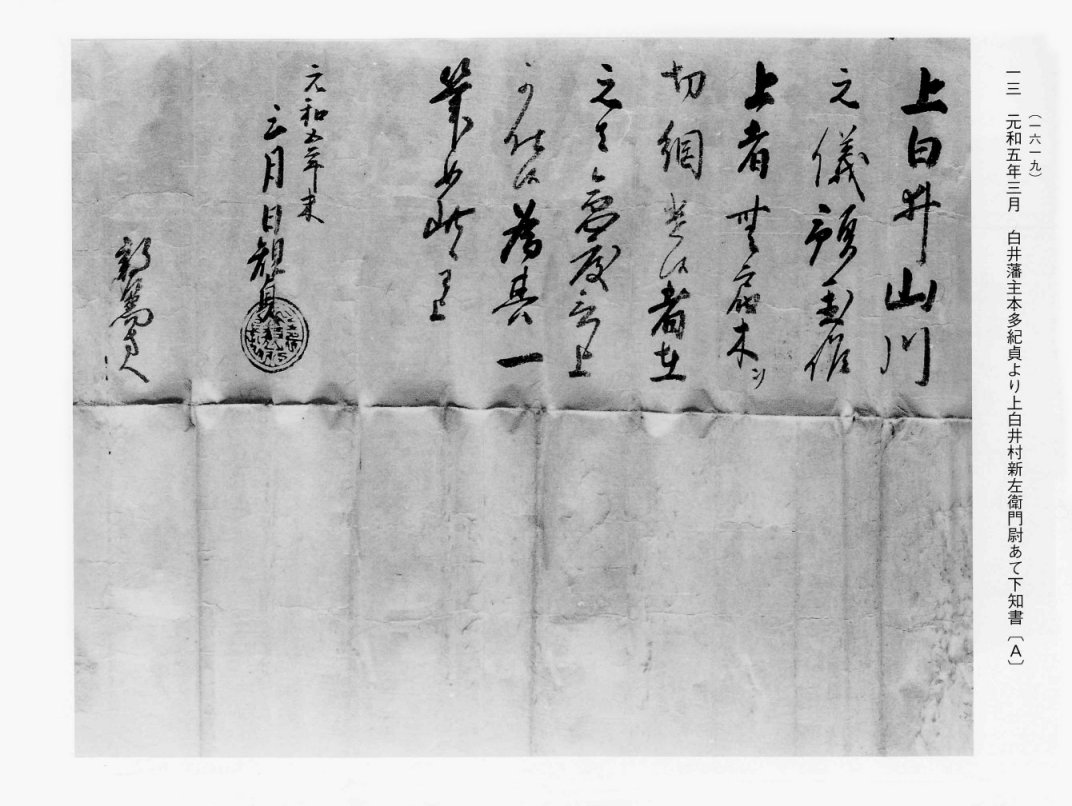 （一六一九）
一三　元和五年三月　白井藩主本多紀貞より上白井村新左衛門尉あて下知書〔A〕
上白井山川
之儀預置候
上者無届木
切網遣候者在
之者急度上
可仕候為其一
筆如此
元和五年未
三月日紀貞